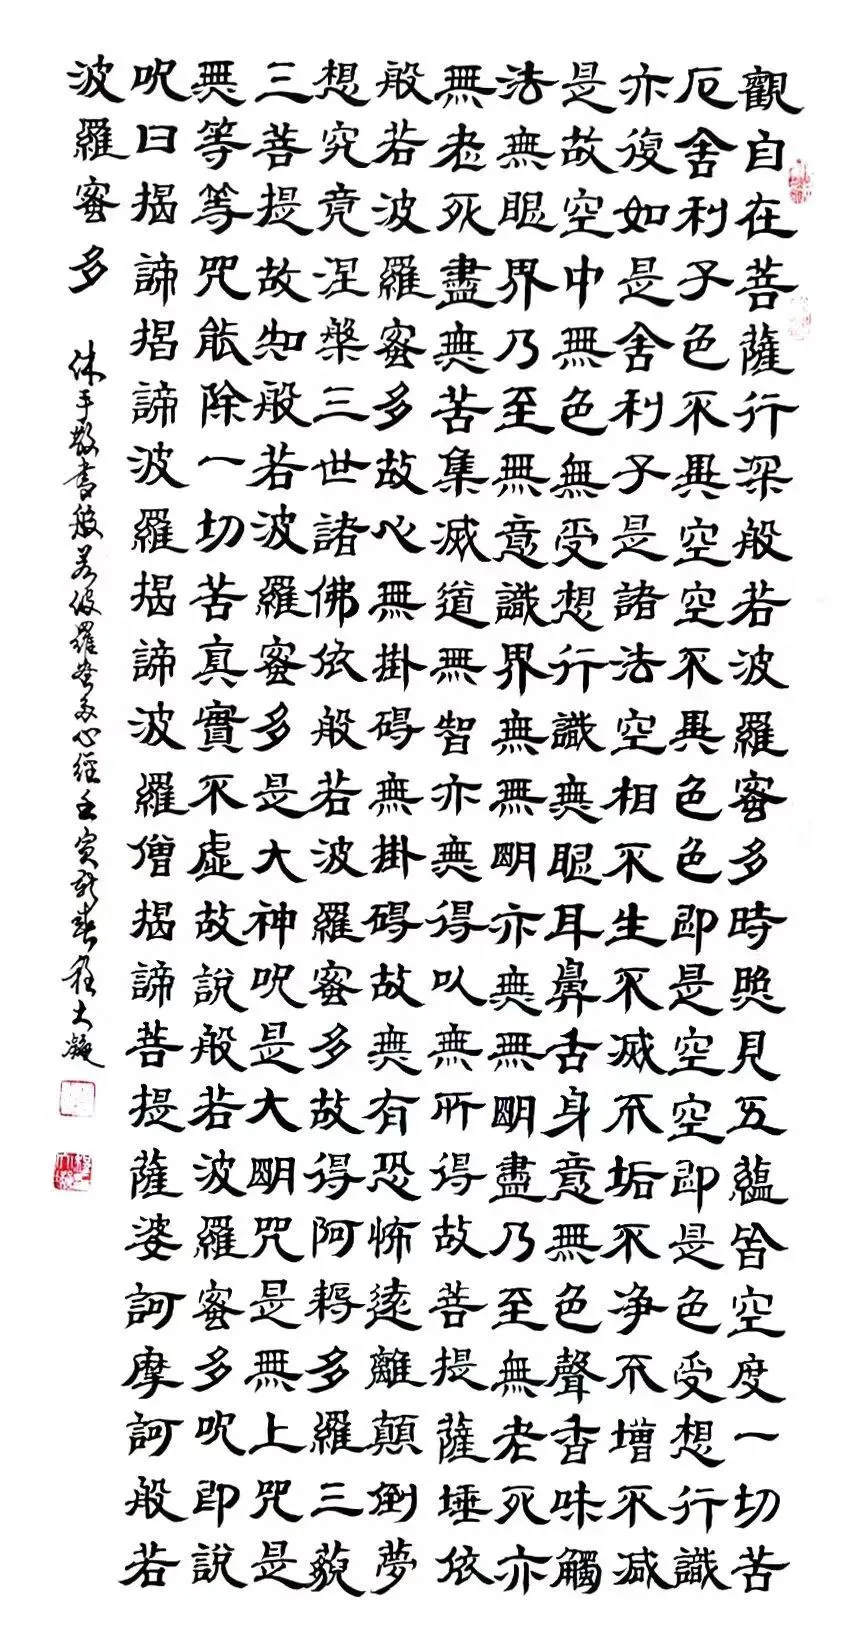 觀自在菩薩行深般若波羅蜜多時照見五蘊皆空度一切苦
厄舍利子色不異空空不異色色即是空空即是色受想行識
亦復如是舍利子是諸法空相不生不滅不垢不净不增不减
是故空中無色無受想行識無眼耳鼻舌身意無色聲香味觸
法無眼界乃至無意識界無無明亦無無明盡乃至無老死亦
無老死盡無苦集滅道無智亦無得以無所得故菩提薩埵依
般若波羅蜜多故心無掛碍無掛碍故無有恐怖遠離顛倒夢
想究竟涅槃三世諸佛依般若波羅蜜多故得阿耨多羅三藐
三菩提故知般若波羅蜜多是大神呪是大明咒是無上咒是
無等等咒能除一切苦真實不虛故說般若波羅蜜多呪即說
呪曰揭諦揭諦波羅揭諦波羅僧揭諦菩提薩婆訶摩訶般若
波羅蜜多
沐手敬書般若波羅蜜多心經壬寅新春程大